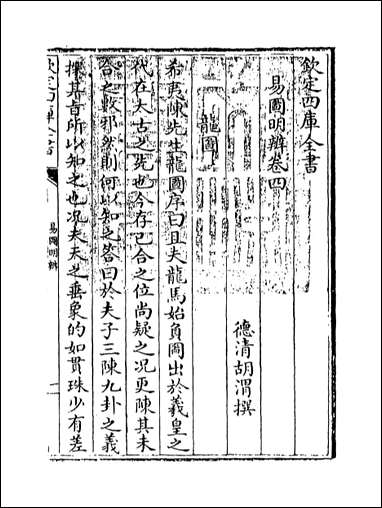 欽定四庫全書
易圖明辨卷四
德清胡渭撰
龍圖
希夷陳先生龍圖序曰且夫龍馬始負圖出於羲皇之
代在太古之先也今存已合之位尚疑之况更陳其未
合之數邪然則何以知之答曰於夫子三陳九卦之義
探其旨所以知之也况夫天之垂象的如貫珠少有差
易圖明辨